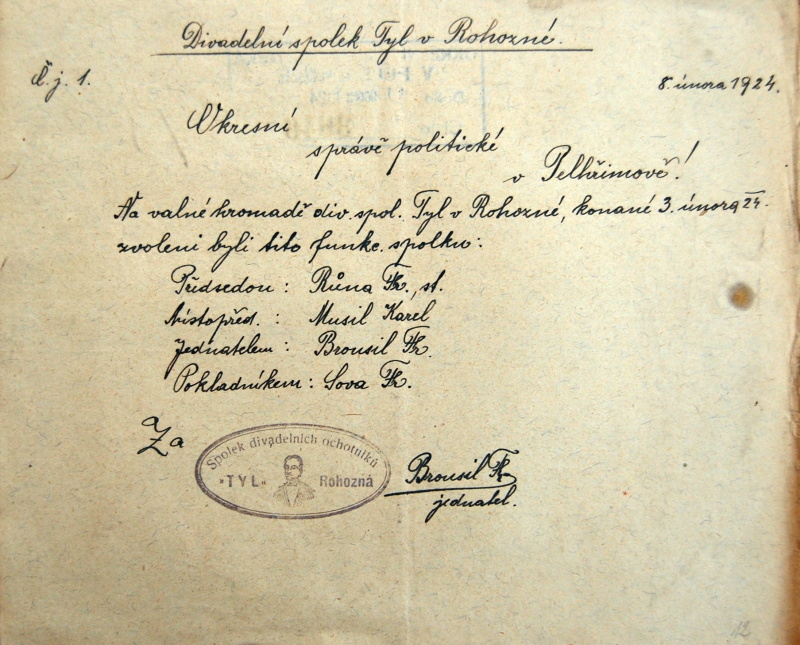 Divadelní spolek Tyl v Rohozné.
Č. j. 1.
8. února 1924.
Okresní
správě politické
v Pelhřimově!
Na valné hromadě div. spol. Tyl v Rohozné, konané 3. února 24.
zvoleni byli tito funkc. spolku:
Předsedou: Růna Fr., st.
Místopřed.: Musil Karel
Jednatelem: Brousil Fr.
Pokladníkem: Sova Fr.
Za
Spolek divadelních ochotníků
"TYL" Rohozná
Brousil Fr.
jednatel.
12